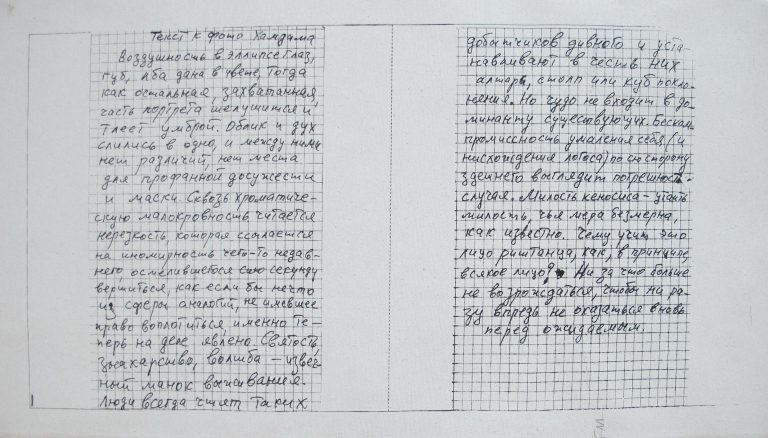 Текст к фото Хамдама
Воздушность в эллипсе глаз,
губ, лба дана в звене, тогда
как остальная, захватанная,
часть портрета шелушится и
тлеет умброй. Облик и дух
слились в одно, и между ними
нет различий, нет места
для профанной досужести
и маски. Сквозь хроматиче-
скую малокровность читается
нерезкость, которая ссылается
на иномирность чего-то недав-
него, осмелившегося сию секунду
вершиться, как если бы нечто
из сферы аналогий, не имевшее
право воплотиться именно те-
перь на деле явлено. Святость,
знахарство, волшба – извеч-
ный манок выживания.
Люди всегда чтят таких
добытчиков дивного и уста-
навливают в честь них
алтарь, столп или куб покло-
нения. Но чудо не входит в до-
минанту существующих. Беском-
промиссность умаления себя (и
нисхождения логоса) по сю сторону
здешнего выглядит погрешность
случая. Милость кеносиса –
милость, чья мера безмерна,
как известно. Чему учит это
лицо риштанца, как, в принципе,
всякое лицо? Ни за что больше
не возрождаться, чтобы ни ра-
зу впредь не оказаться вновь
перед ожидаемым.